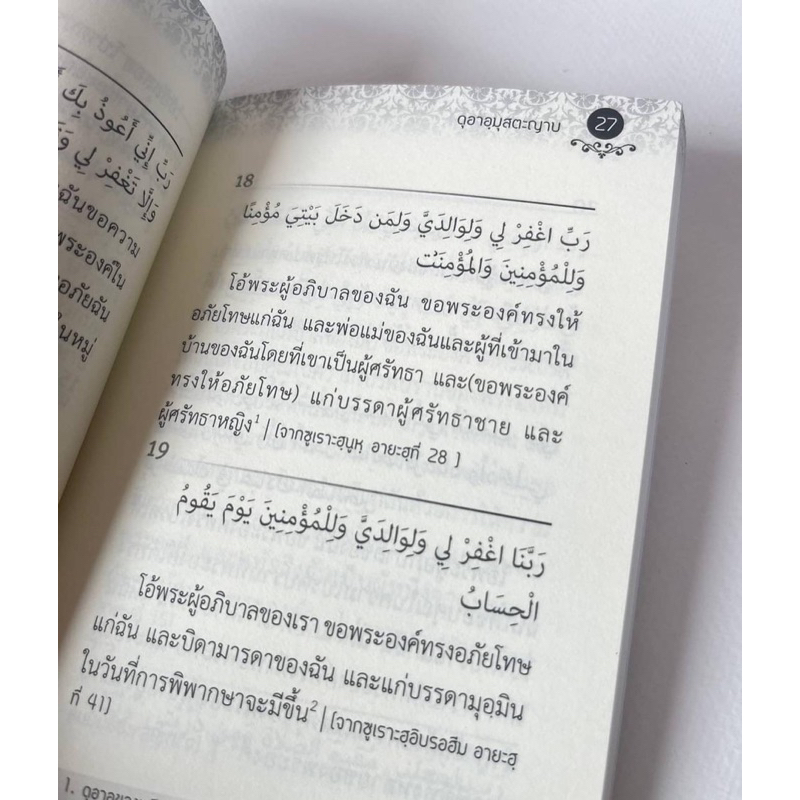 رَبِّ إِنِّي أَعُوذُ بِكَ
وَإِلَّا تَغْفِرْ لِي
ฉันขอความ
พระองค์ใน
อภัยฉัน
ในหมู่
ดุอาอฺมุสตะญาบ 27
18
رَبِّ اغْفِرْ لِي وَلِوَالِدَيَّ وَلِمَن دَخَلَ بَيْتِيَ مُؤْمِنًا
وَلِلْمُؤْمِنِينَ وَالْمُؤْمِنَٰتِ
โอ้พระผู้อภิบาลของฉัน ขอพระองค์ทรงให้
อภัยโทษแก่ฉัน และพ่อแม่ของฉันและผู้ที่เข้ามาใน
บ้านของฉันโดยที่เขาเป็นผู้ศรัทธา และ(ขอพระองค์
ทรงให้อภัยโทษ) แก่บรรดาผู้ศรัทธาชาย และ
ผู้ศรัทธาหญิง¹ | [จากซูเราะฮฺนูหฺ อายะฮฺที่ 28 ]
19
رَبَّنَا اغْفِرْ لِي وَلِوَالِدَيَّ وَلِلْمُؤْمِنِينَ يَوْمَ يَقُومُ
الْحِسَابُ
โอ้พระผู้อภิบาลของเรา ขอพระองค์ทรงอภัยโทษ
แก่ฉัน และบิดามารดาของฉัน และแก่บรรดามุอฺมิน
ในวันที่การพิพากษาจะมีขึ้น² | [จากซูเราะฮฺอิบรอฮีม อายะฮฺ
ที่ 41]